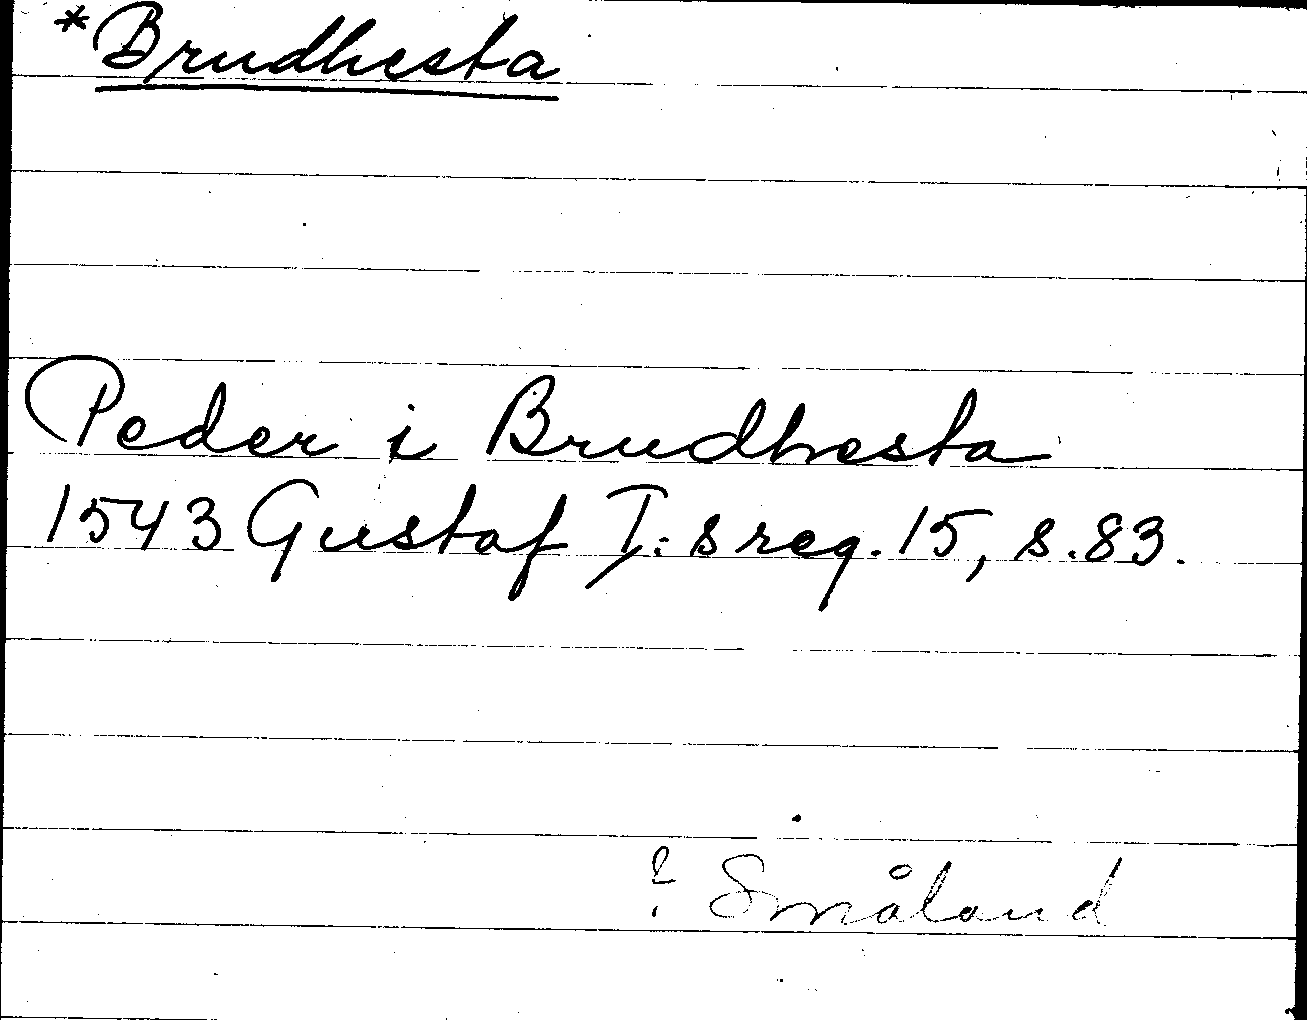 *Brudhesta
Peder i Brudhesta
1543 Gustaf I:s reg. 15, s. 83.
? Småland